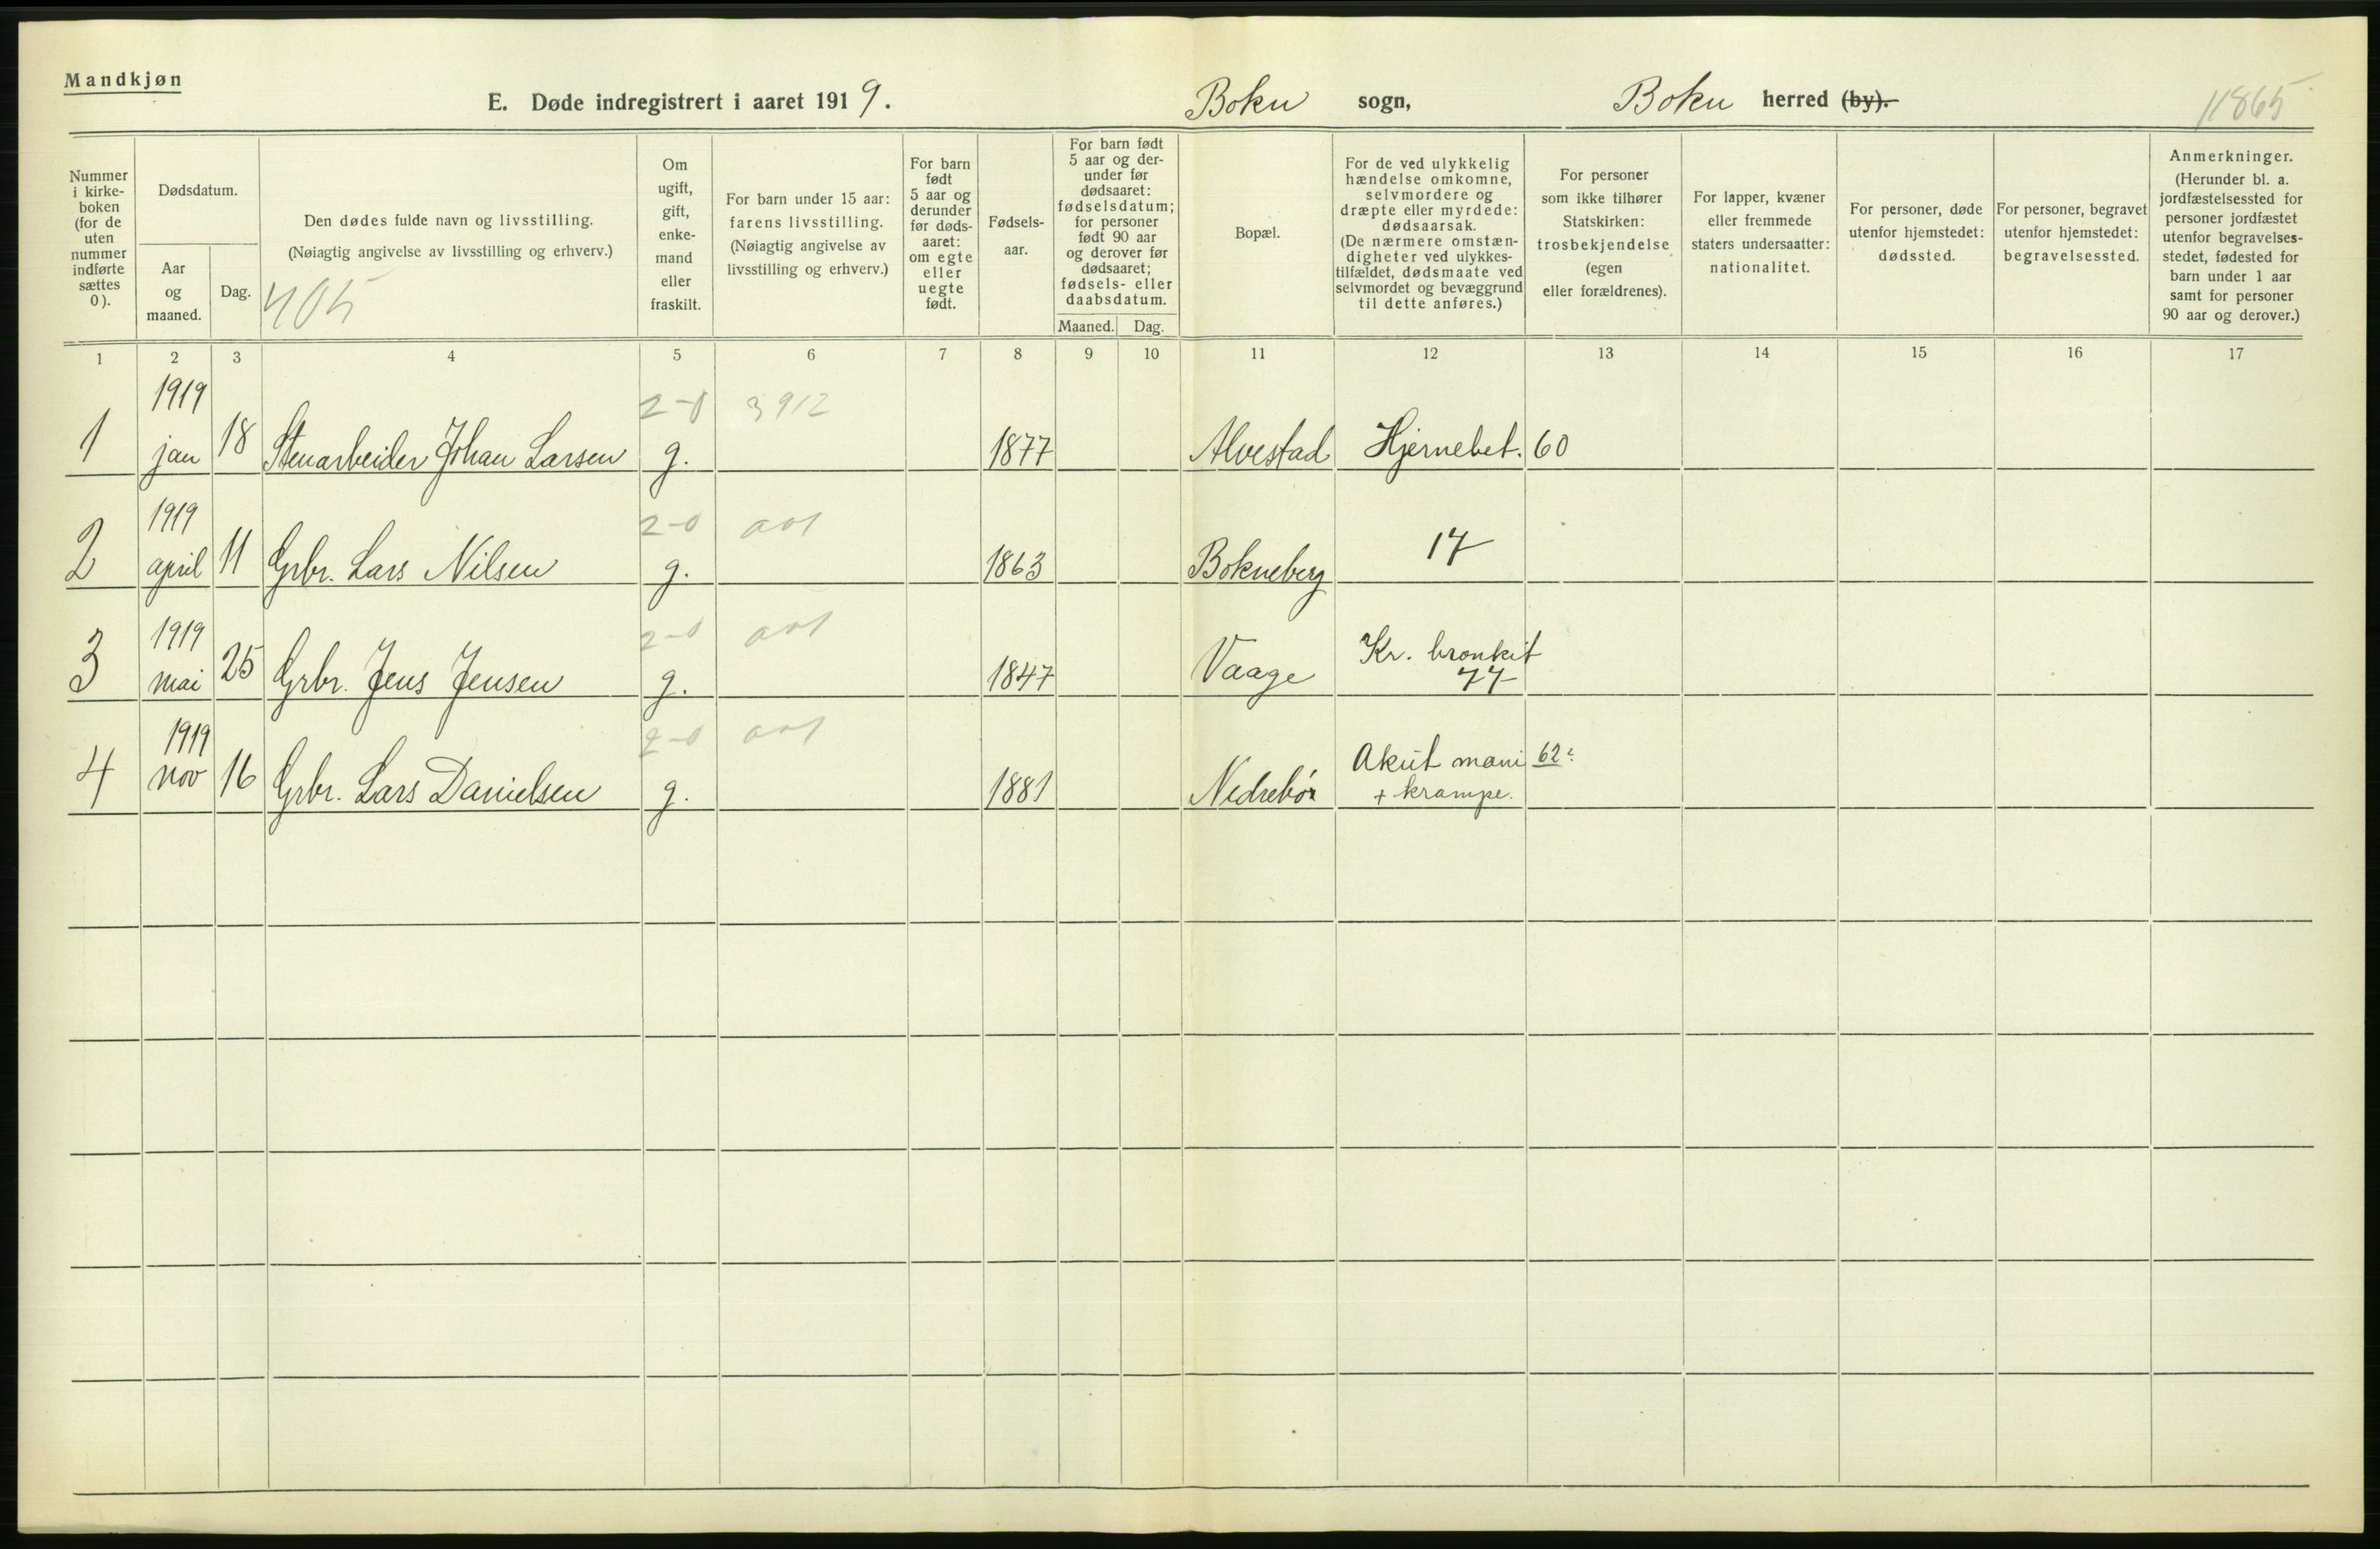 Mandkjøn
E. Døde indregistrert i aaret 1919. Bokn sogn, Bokn herred (by). 11865
Nummer i kirke-boken (for de uten nummer indførte sættes 0).
Dødsdatum.
Aar og maaned.
Dag.
Den dødes fulde navn og livsstilling.
(Nøiagtig angivelse av livsstilling og erhverv.)
405
Om ugift, gift, enke-mand eller fraskilt.
For barn under 15 aar: farens livsstilling. (Nøiagtig angivelse av livsstilling og erhverv.)
For barn født 5 aar og derunder før døds-aaret: om egte eller uegte født.
Fødsels-aar.
For barn født 5 aar og der-under før dødsaaret: fødselsdatum; for personer født 90 aar og derover før dødsaaret; fødsels- eller daabsdatum.
Maaned. Dag.
Bopæl.
For de ved ulykkelig hændelse omkomne, selvmordere og dræpte eller myrdede: dødsaarsak. (De nærmere omstæn-digheter ved ulykkes-tilfældet, dødsmaate ved selvmordet og bevæggrund til dette anføres.)
For personer som ikke tilhører Statskirken: trosbekjendelse (egen eller forældrenes).
For lapper, kvæner eller fremmede staters undersaatter: nationalitet.
For personer, døde utenfor hjemstedet: dødssted.
For personer, begravet utenfor hjemstedet: begravelsessted.
Anmerkninger. (Herunder bl. a. jordfæstelsessted for personer jordfæstet utenfor begravelses-stedet, fødested for barn under 1 aar samt for personer 90 aar og derover.)
1 2 3 4 5 6 7 8 9 10 11 12 13 14 15 16 17
1919 2-0 3912
1 jan 18 Stenarbeider Johan Larsen g. 1877 Alvestad Hjernebet. 60
1919 2-0 001
2 april 11 Grbr. Lars Nilsen g. 1863 Bokneberg 17
1919 2-0 001
3 mai 25 Grbr. Jens Jensen g. 1847 Vaage Kr. bronkit
77
1919 2-0 001
4 nov 16 Grbr. Lars Danielsen g. 1881 Nedrebø Akut mani 62²
+ krampe.